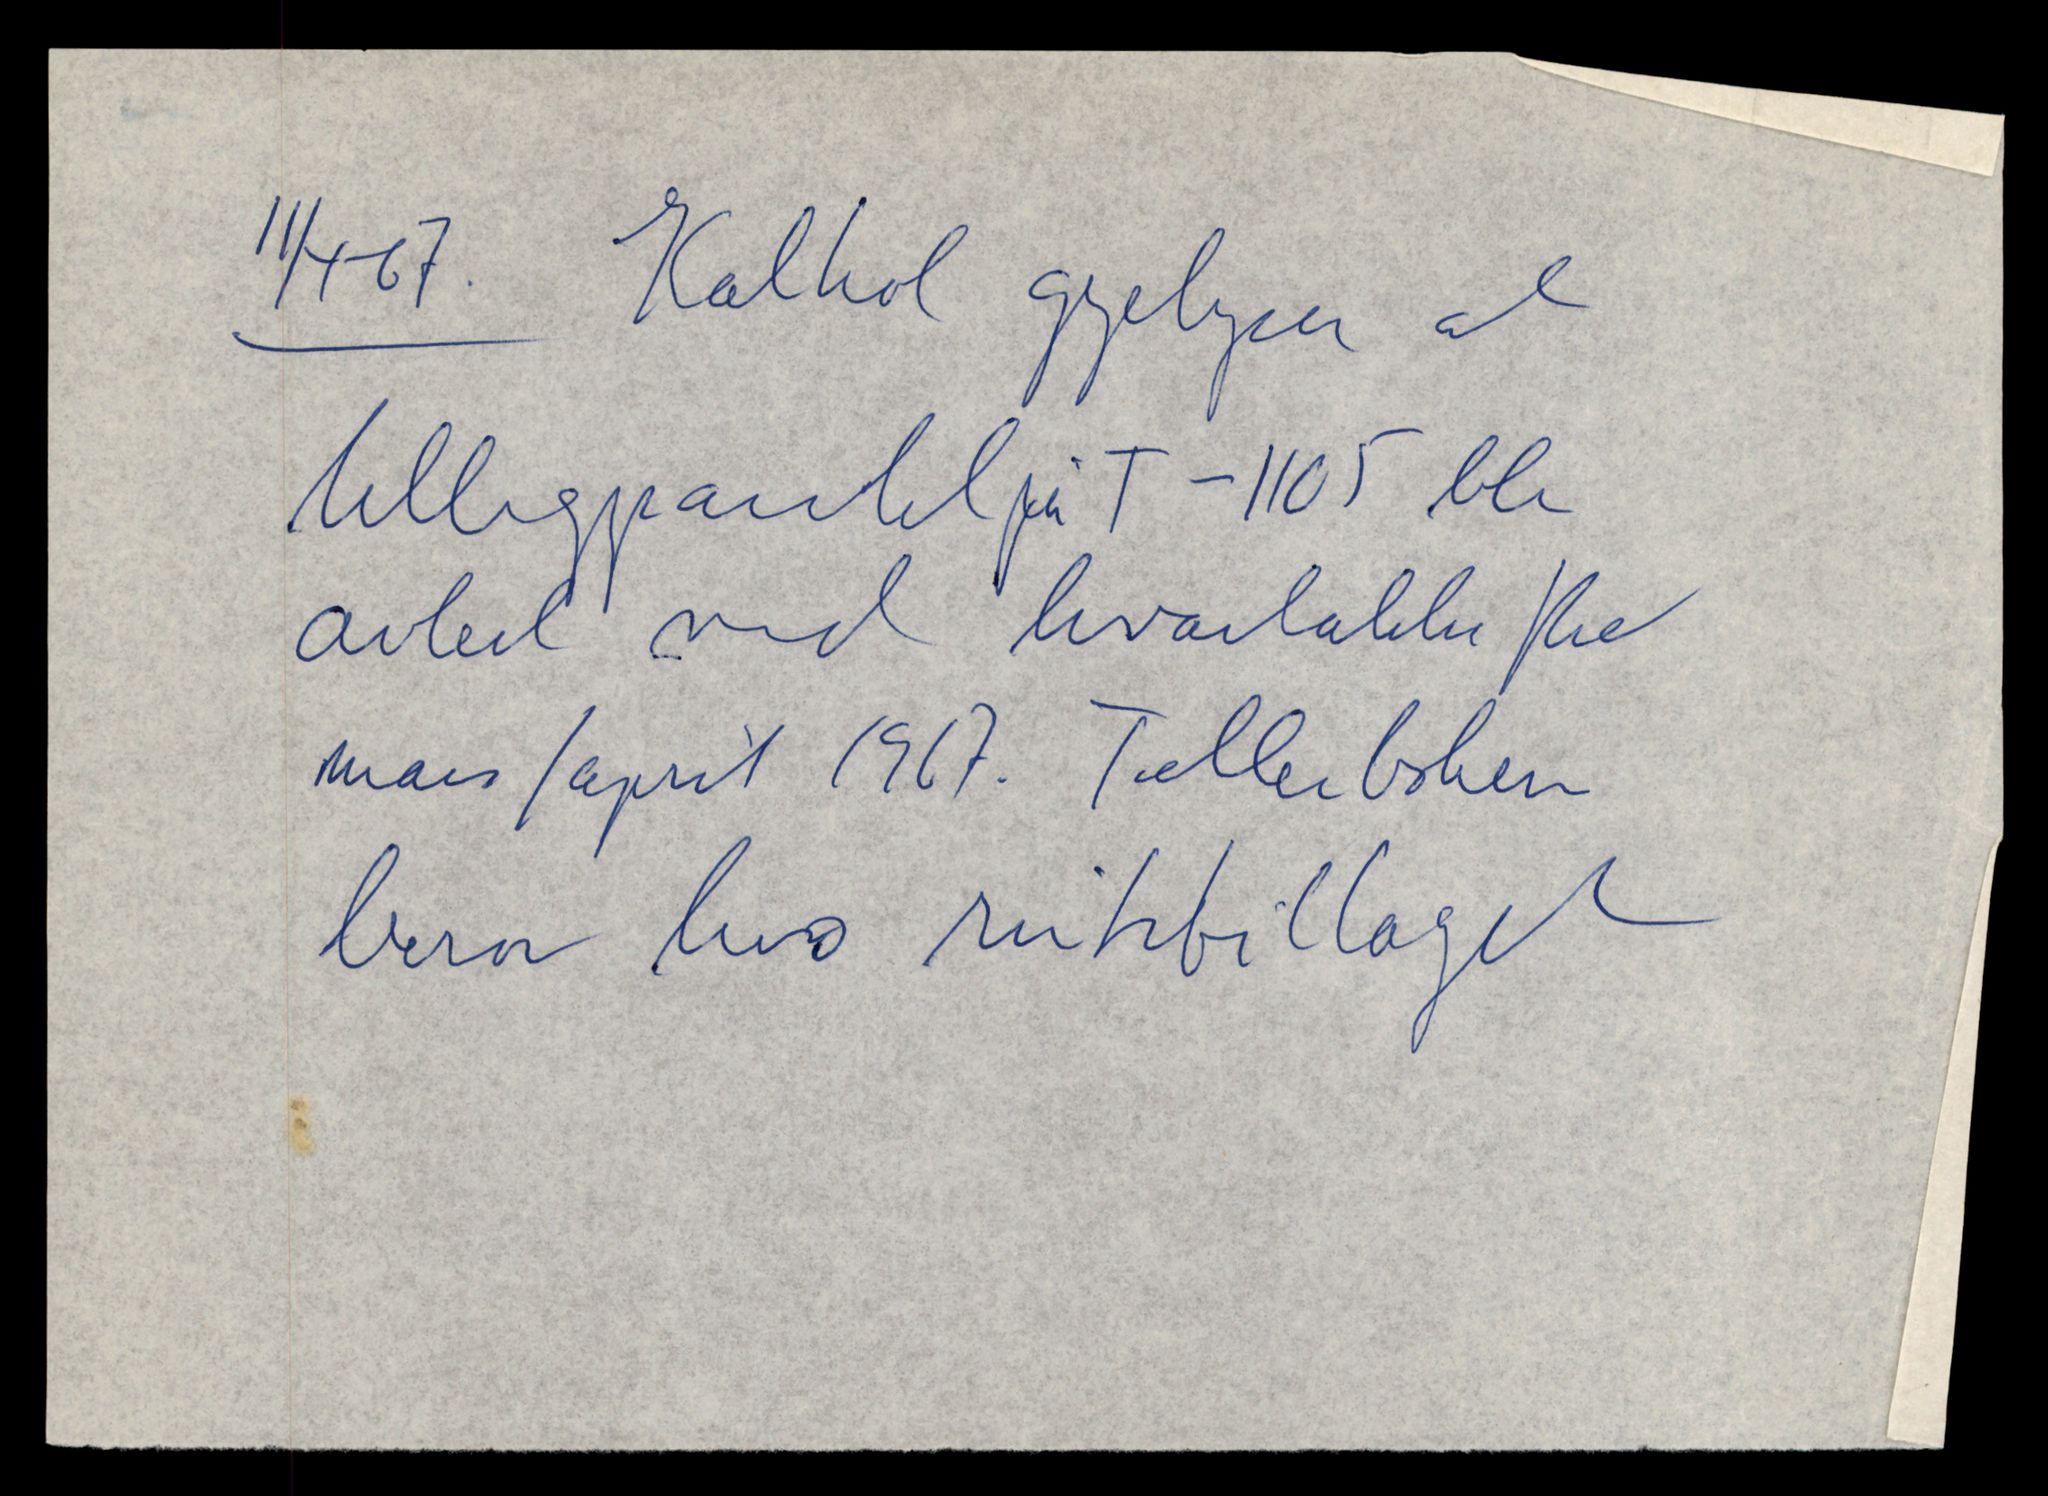 11/4-67. Kalhol opplyser at
tilleggsantel på T-1105 ble
avlest ved kvartalsskifte
mars/april 1967. Tellerboken
beror hos rutebillaget